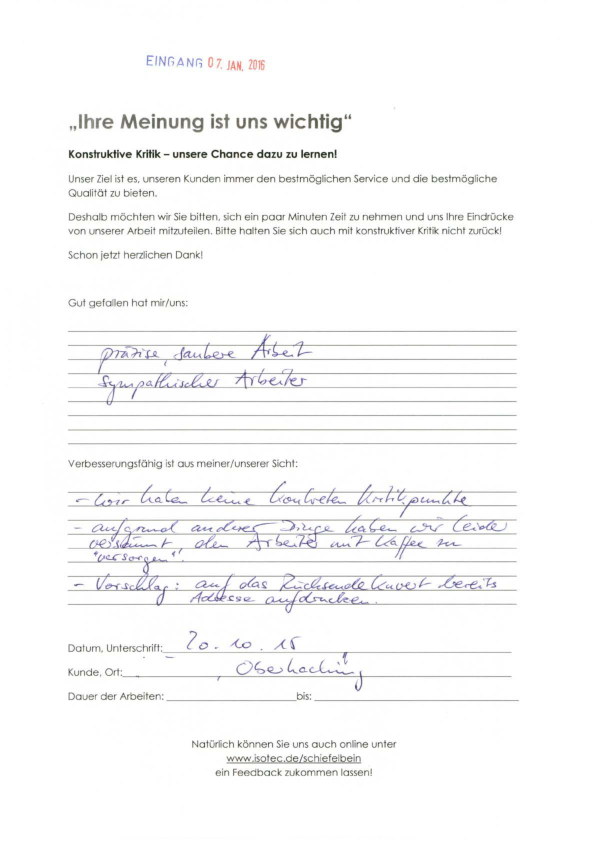 EINGANG 07. JAN. 2016
„Ihre Meinung ist uns wichtig“
Konstruktive Kritik – unsere Chance dazu zu lernen!
Unser Ziel ist es, unseren Kunden immer den bestmöglichen Service und die bestmögliche
Qualität zu bieten.
Deshalb möchten wir Sie bitten, sich ein paar Minuten Zeit zu nehmen und uns Ihre Eindrücke
von unserer Arbeit mitzuteilen. Bitte halten Sie sich auch mit konstruktiver Kritik nicht zurück!
Schon jetzt herzlichen Dank!
Gut gefallen hat mir/uns:
präzise, saubere Arbeit
sympathischer Arbeiter
Verbesserungsfähig ist aus meiner/unserer Sicht:
- wir haben keine konkreten Kritikpunkte
- aufgrund anderer Dinge haben wir leider
versäumt den Arbeiter mit Kaffee zu
"versorgen".
- Vorschlag: auf das Rücksendekuvert bereits
Adresse aufdrucken.
Datum, Unterschrift: 20.10.15
Kunde, Ort: , Oberhaching
Dauer der Arbeiten: bis:
Natürlich können Sie uns auch online unter
www.isotec.de/schiefelbein
ein Feedback zukommen lassen!